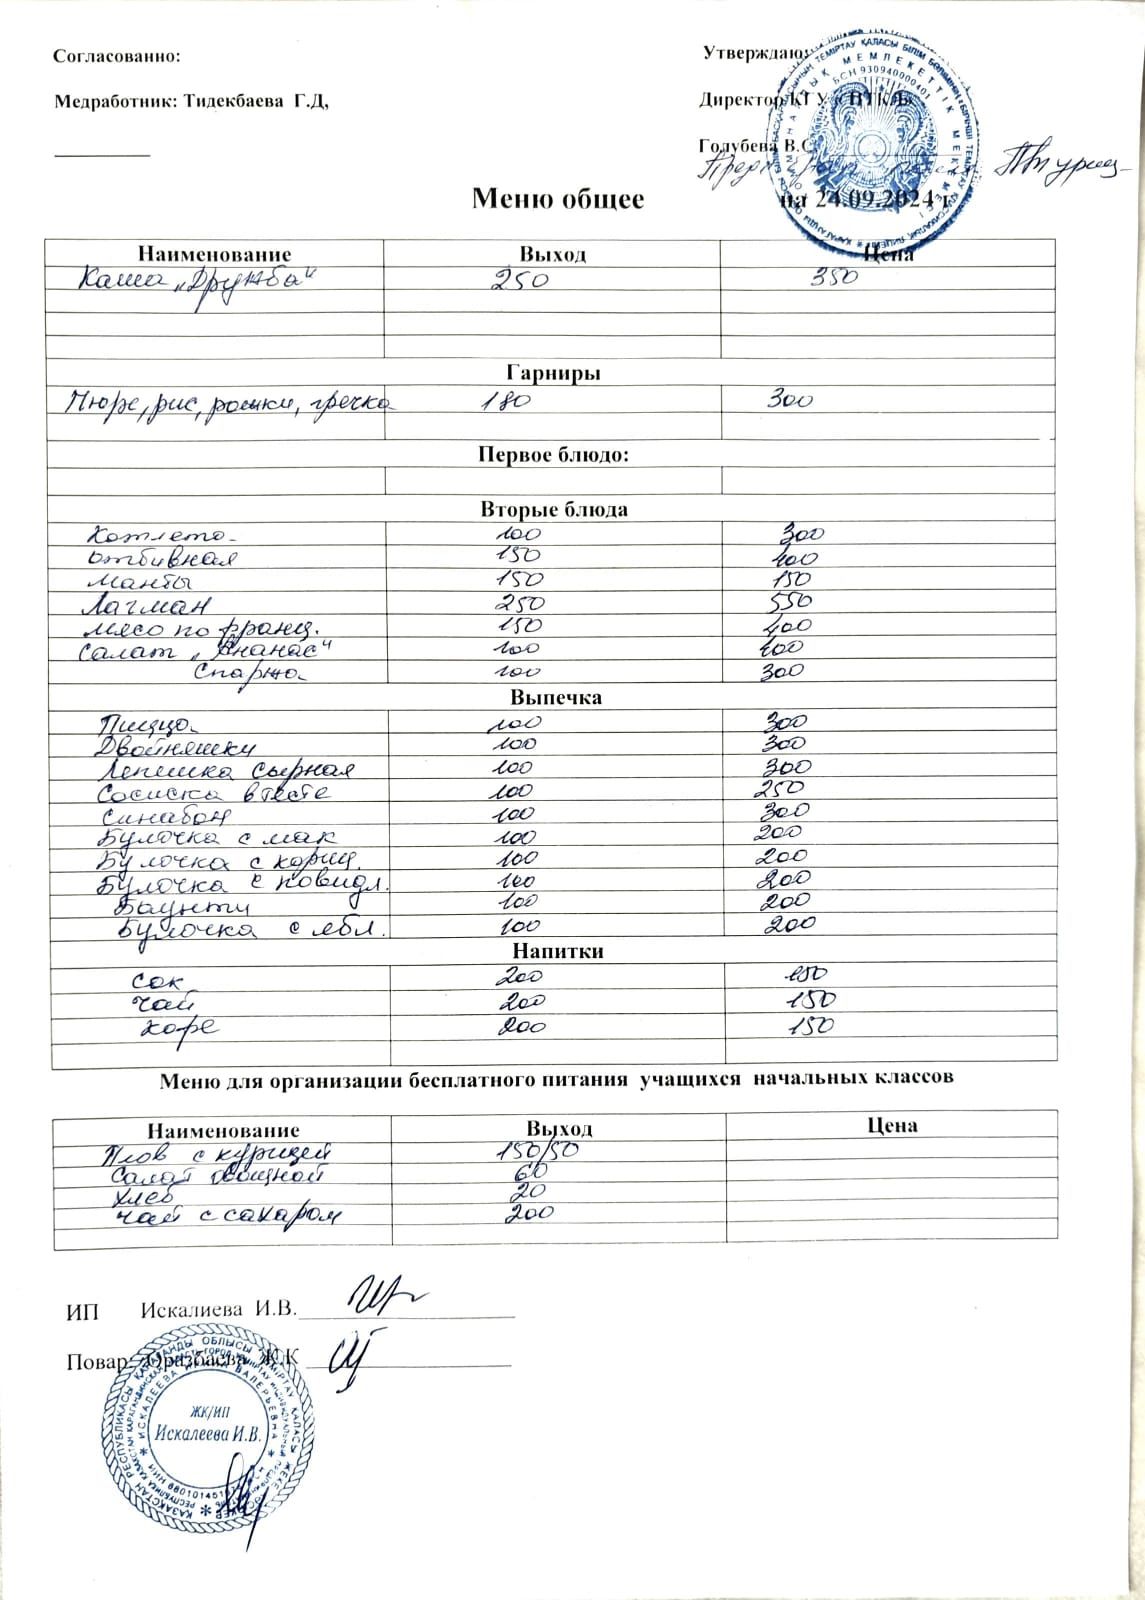 Согласованно:
Утверждаю:
Медработник: Тидекбаева Г.Д,
Директор КГУ «ПТКЛ»
Голубева В.С.
Меню общее на 24.09.2024 г.
Наименование Выход Цена
Каша „Дружба“ 250 350
Гарниры
Пюре, рис, рожки, гречка 180 300
Первое блюдо:
Вторые блюда
Котлета 100 300
отбивная 150 400
манты 150 150
Лагман 250 550
мясо по франц. 150 400
Салат „Ананас“ 100 400
Спаржа 100 300
Выпечка
Пицца 100 300
Двойняшки 100 300
Лепешка сырная 100 300
Сосиска в тесте 100 250
Синабон 100 300
Булочка с мак 100 200
Булочка с кориц. 100 200
Булочка с повидл. 100 200
Баунти 100 200
Булочка с ябл. 100 200
Напитки
Сок 200 150
чай 200 150
кофе 200 150
Меню для организации бесплатного питания учащихся начальных классов
Наименование Выход Цена
Плов с курицей 150/50
Салат овощной 60
хлеб 20
чай с сахаром 200
ИП Искалиева И.В.
Повар Оразбаева Ж.К
ЖК/ИП
Искалеева И.В.